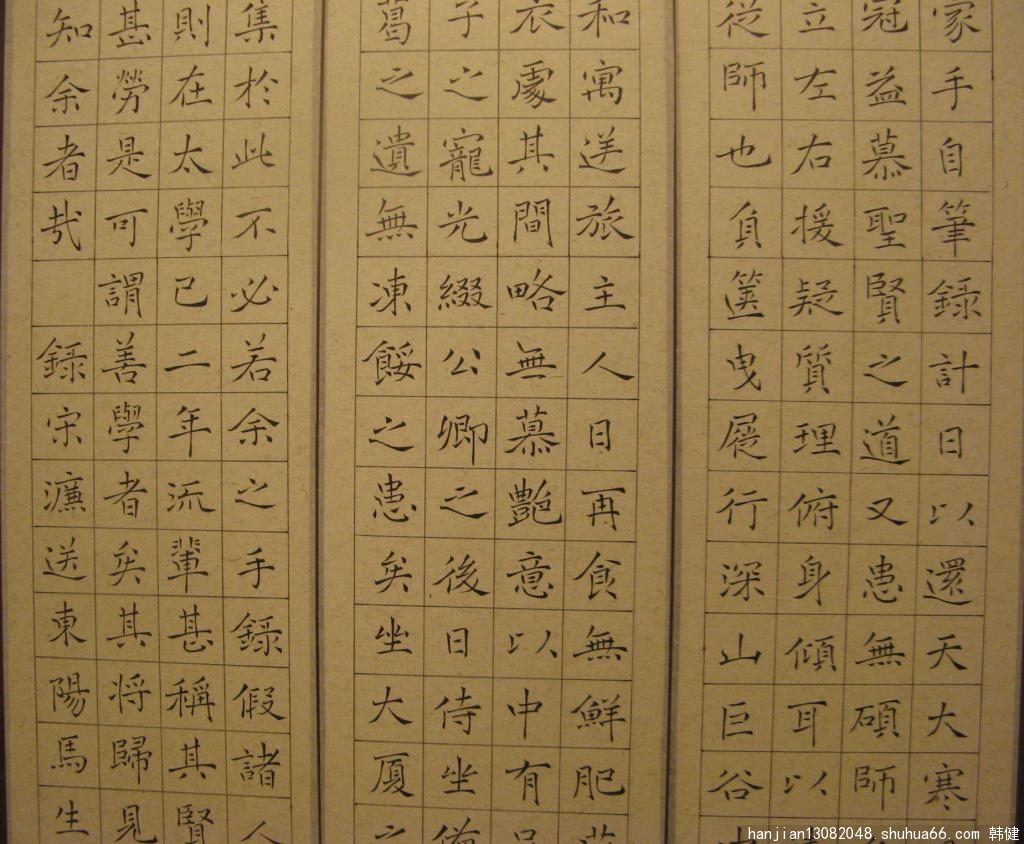 家手自筆錄計日以還天大寒
冠益慕聖賢之道又患無碩師
立左右援疑質理俯身傾耳以
從師也負篋曳屣行深山巨谷
和寓逆旅主人日再食無鮮肥
衣處其間略無慕艷意以中有
子之寵光綴公卿之後日侍坐備
葛之遺無凍餒之患矣坐大厦之
集於此不必若余之手錄假諸人
則在太學已二年流輩甚稱其賢
甚勞是可謂善學者矣其将歸見
知余者哉 錄宋濂送東陽馬生
hanjian13082048.shuhua66.com 韩健